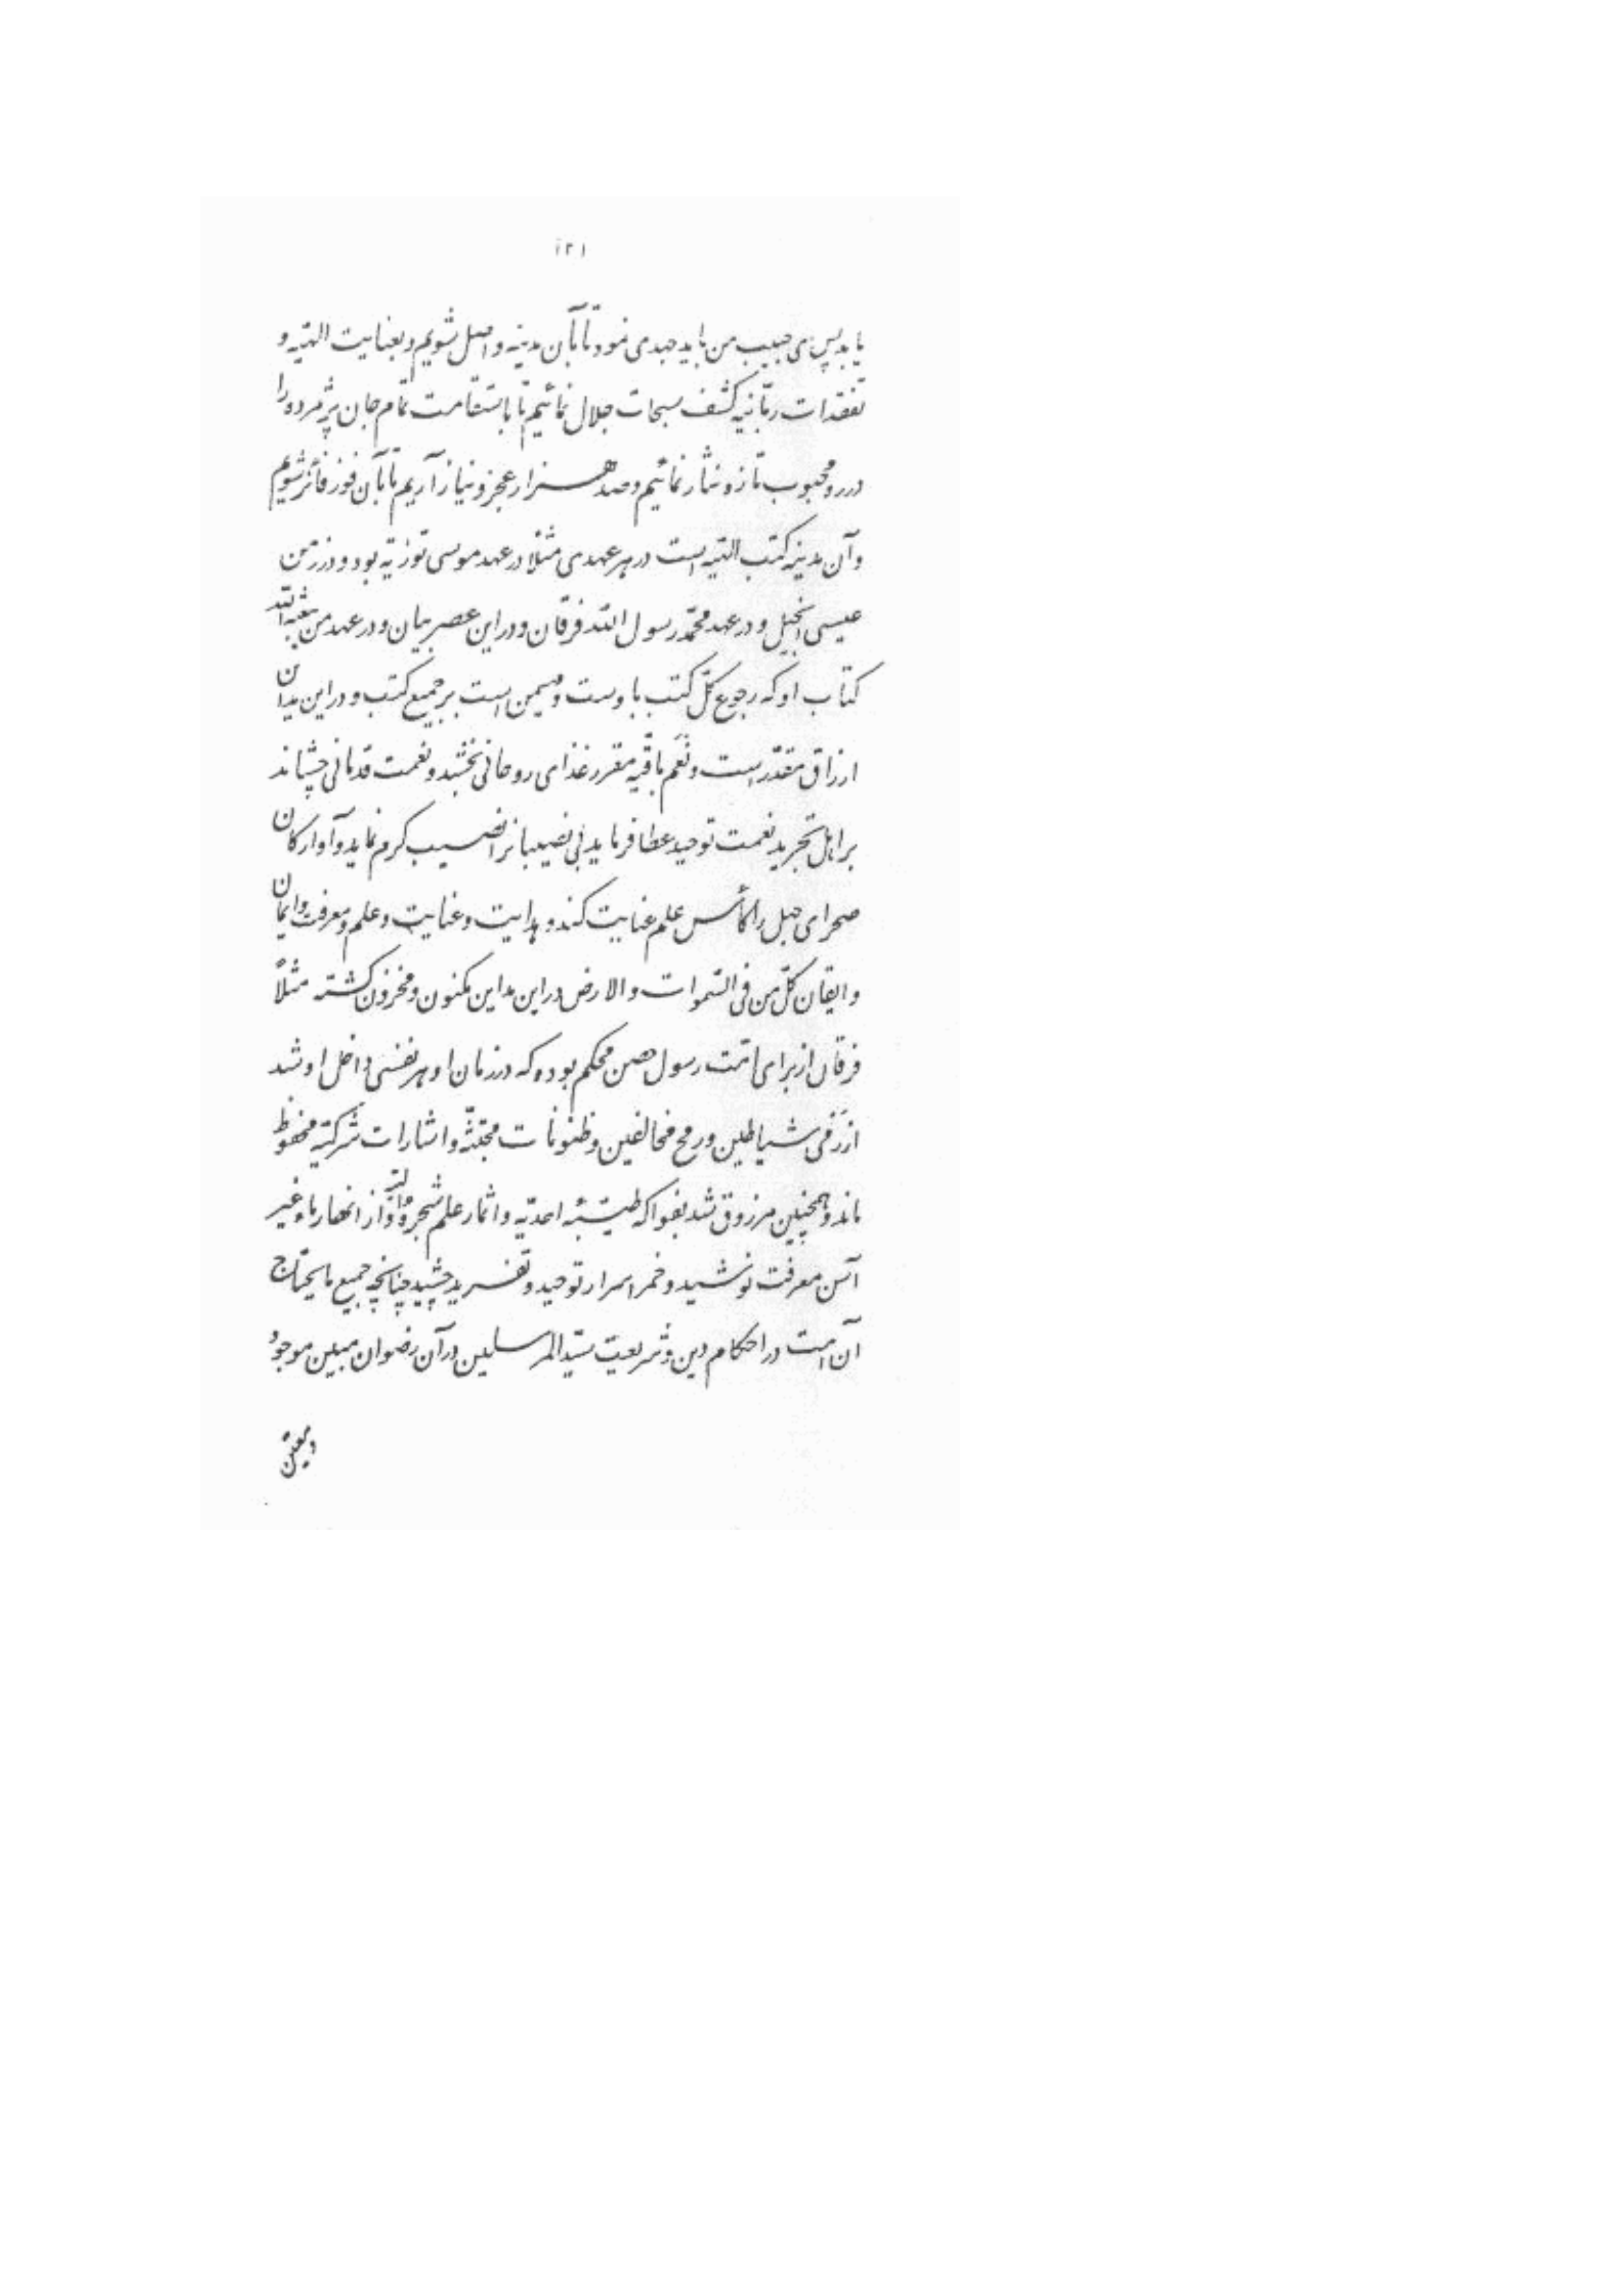 ۱۲۱
یابد پس ای حبیب من باید جهدی نمود تا بآن مدینه واصل شویم و بعنایت الهیّه و
تفقدات ربّانیه کشف سبحات جلال نمائیم تا باستقامت تمام جان پژمرده را
در ره محبوب تازه نثار نمائیم و صد هزار عجز و نیاز آریم تا بآن فوز فائز شویم
و آن مدینه کتب الهیّه است در هر عهدی مثلاً در عهد موسی توریة بود و در زمن
عیسی انجیل و در عهد محمّد رسول اللّه فرقان و در این عصر بیان و در عهد من یبعثه اللّه
کتاب او که رجوع کلّ کتب باوست و مهیمن است بر جمیع کتب و در این مداین
ارزاق مقدّر است و نعَم باقیّه مقرّر غذای روحانی بخشد و نعمت قدمانی چشاند
بر اهل تجرید نعمت توحید عطا فرماید بی نصیبانرا نصیب کرم نماید و آوارکان
صحرای جهل را کأس علم عنایت کند و هدایت و عنایت و علم و معرفت و ایمان
و ایقان کلّ من فی السّموات و الارض در این مداین مکنون و مخزون کشته مثلاً
فرقان از برای امّت رسول حصن محکم بوده که در زمان او هر نفسی داخل او شد
از رَمی شیاطین و رمح مخالفین و ظنونات مجتثّه و اشارات شرکیّه محفوظ
ماند و همچنین مرزوق شد بفواکه طیّبه احدیّه و اثمار علم شجره الهیّه و از انهار ماء غیر
آسن معرفت نوشید و خمر اسرار توحید و تفرید چشید چنانچه جمیع مایحتاج
آن امّت در احکام دین و شریعت سیّد المرسلین در آن رضوان مبین موجود
و معیّن